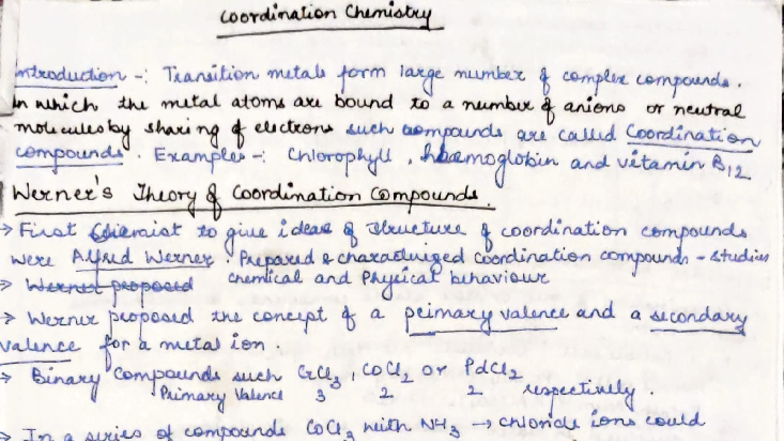 Coordination Chemistry
Introduction -: Transition metals form large number of complex compounds.
In which the metal atoms are bound to a number of anions or neutral
molecules by sharing of electrons such compounds are called Coordination
compounds. Examples -: Chlorophyll, haemoglobin and vitamin B12
Werner's Theory of Coordination Compounds.
→ First Chemist to give ideas of structure of coordination compounds
were Alfred Werner. Prepared & characterized coordination compounds - studies
→ Werner proposed chemical and Physical behaviour
→ Werner proposed the concept of a primary valence and a secondary
valence for a metal ion.
→ Binary Compounds such CrCl3, CoCl2 or PdCl2
Primary Valence 3 2 2 respectively.
→ In a series of compounds CoCl3 with NH3 → chloride ions could